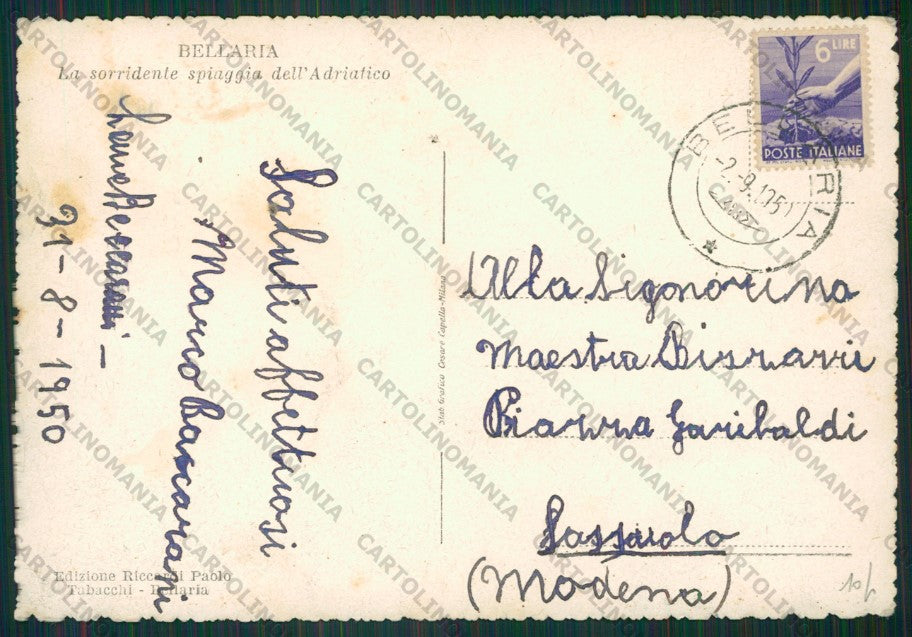 BELLARIA
La sorridente spiaggia dell'Adriatico
Saluti affettuosi
Marco Baccarani
31-8-1950
Edizione Riccardi Paolo
Tabacchi - Bellaria
Stab Grafico Cesare Capella-Milano
6 LIRE
POSTE ITALIANE
BELLARIA
-2.-9.1950
Alla Signorina
Maestra Bizzarri
Piazza Garibaldi
Sassuolo
(Modena)
CARTOLINOMANIA